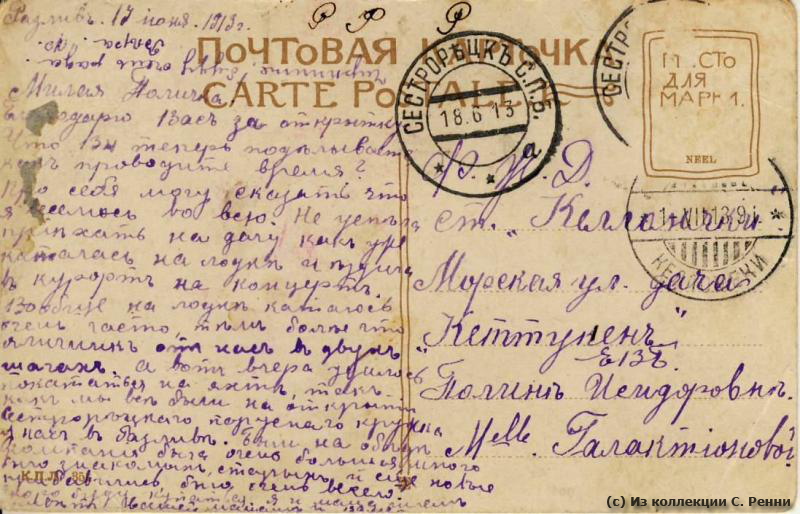 Разливъ. 17 іюня. 1913г.
ПОЧТОВАЯ КАРТОЧКА
CARTE POSTALE
Милая Поличка!
Благодарю Васъ за открытку
Что Вы теперь подѣлываете
какъ проводите время?
Про себя могу сказать что
я веселюсь во всю. Не успѣла
пріѣхать на дачу какъ уже
каталась на лодкѣ и ѣздила
въ курортъ на концертъ.
Вообще на лодкѣ катаюсь
очень часто, тѣмъ болѣе что
яличникъ отъ насъ въ двухъ
шагахъ. а вотъ вчера удалось
покататься на яхтѣ, такъ
какъ мы всѣ были на открытіи
Сестрорѣцкаго паруснаго кружка
у насъ въ Разливѣ.
компанія была очень большая много
было знакомыхъ старыхъ и
было очень весело
СЕСТРОРѢЦКЪ С.П.Б.
18.6.13
а
СЕСТРОР
МѢСТО
ДЛЯ
МАРКИ.
NEEL
Ф. Ж. Д.
ст. „Келломяки
Морская ул. дача
„Кеттуненъ"
Е.В.
Полинѣ Исидоровнѣ
Melle Галактіоновой
(c) Из коллекции С. Ренни